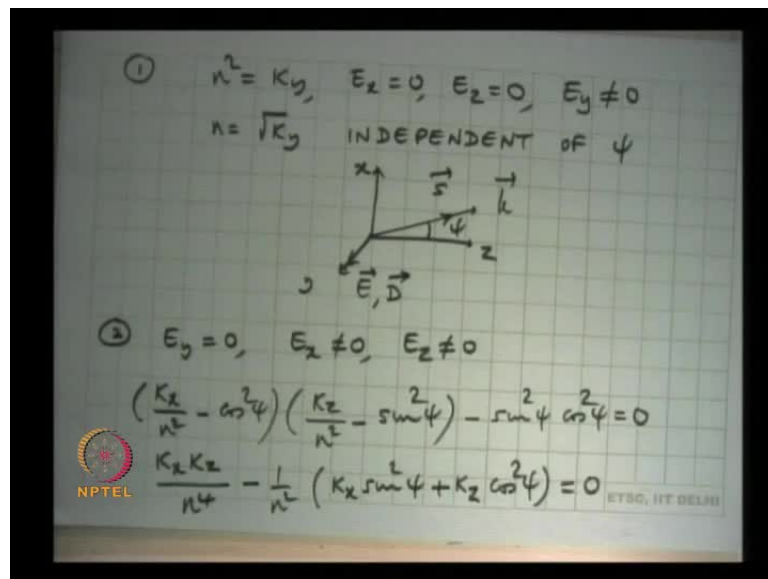 ① n² = Ky, Ex = 0, Ez = 0, Ey ≠ 0
n = √Ky INDEPENDENT OF ψ
x s k
ψ
z
y E, D
② Ey = 0, Ex ≠ 0, Ez ≠ 0
(Kx/n² - cos²ψ)(Kz/n² - sin²ψ) - sin²ψ cos²ψ = 0
KxKz/n⁴ - 1/n² (Kx sin²ψ + Kz cos²ψ) = 0
NPTEL
ETSC, IIT DELHI